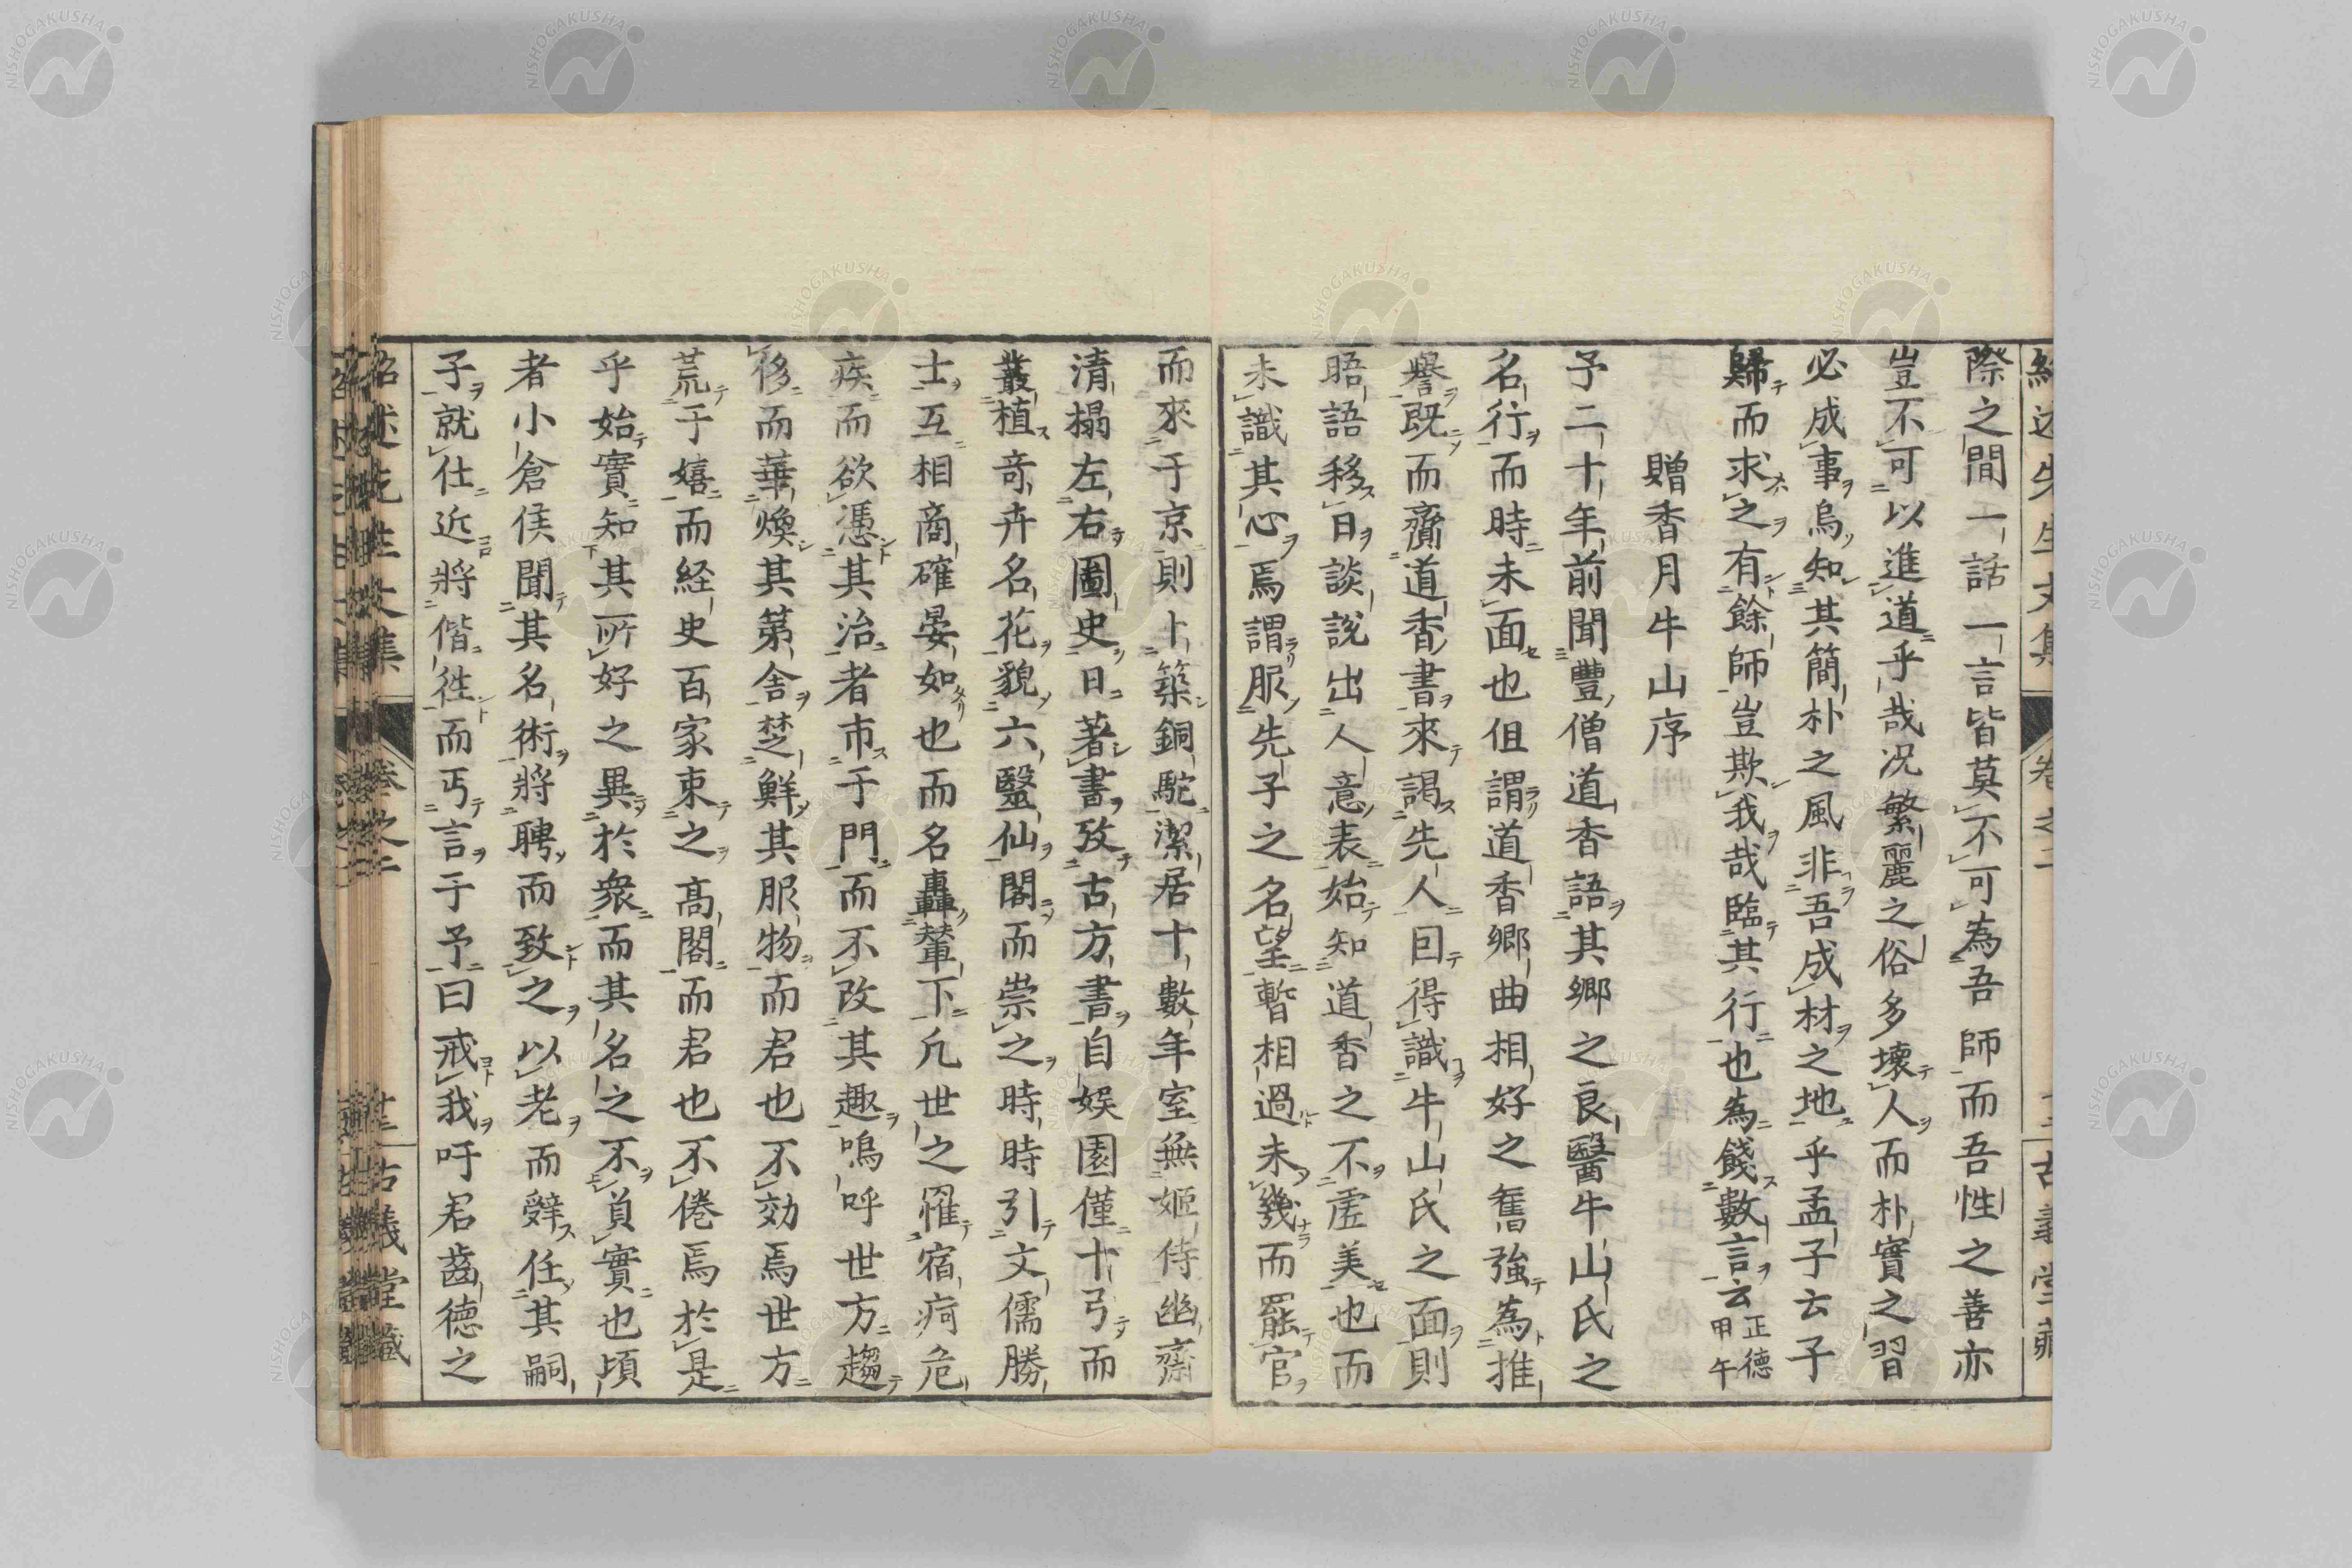 際之間一話一言皆莫不可為吾師而吾性之善亦
豈不可以進道乎哉況繁麗之俗多壞人而朴實之習
必成事烏知其簡朴之風非吾成材之地乎孟子云子
歸而求之有餘師豈欺我哉臨其行也為餞數言云正德甲午
贈香月牛山序
予二十年前聞豐僧道香語其鄉之良醫牛山氏之
名行而時未面也但謂道香鄉曲相好之舊強為推
譽既而齎道香書來謁先人因得識牛山氏之面則
晤語移日談說出人意表始知道香之不虛美也而
未識其心焉謂服先子之名望暫相過未幾而罷官
而來于京則卜築銅駝潔居十數年室無姬侍幽齋
清榻左右圖史日著書攷古方書自娛園僅十弓而
叢植奇卉名花貌六醫仙閣而崇之時時引文儒勝
士互相商確晏如也而名轟輦下凢世之罹宿痾危
疾而欲憑其治者市于門而不改其趣嗚呼世方趨
侈而華煥其第舍楚鮮其服物而君也不効焉世方
荒于嬉而経史百家束之高閣而君也不倦焉於是
乎始實知其所好之異於衆而其名之不負實也頃
者小倉侯聞其名術將聘而致之以老而辭任其嗣
子就仕近將偕徃而丐言于予曰戒我吁君齒德之
紹述先生文集 卷之二 古義堂藏